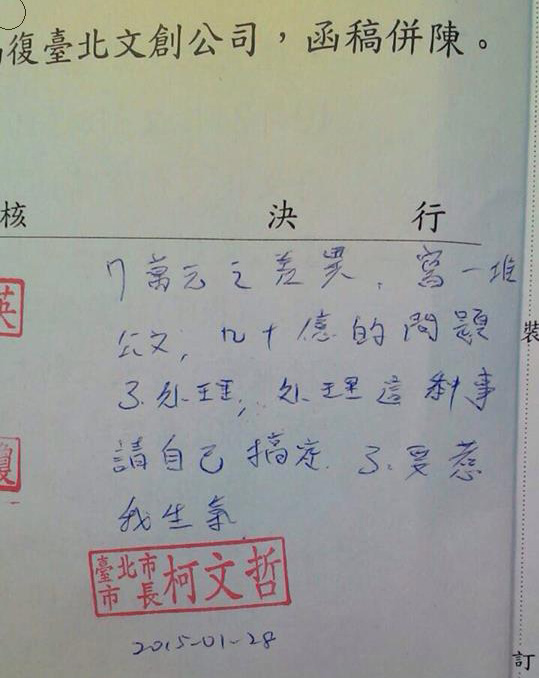 復臺北文創公司，函稿併陳。
核 決 行
7萬元之差異，寫一堆
公文，几十億的問題
不处理，处理這 事
請自己搞定. 不要惹
我生氣.
臺北市
市長
柯文哲
2015-01-28
英
裝
訂